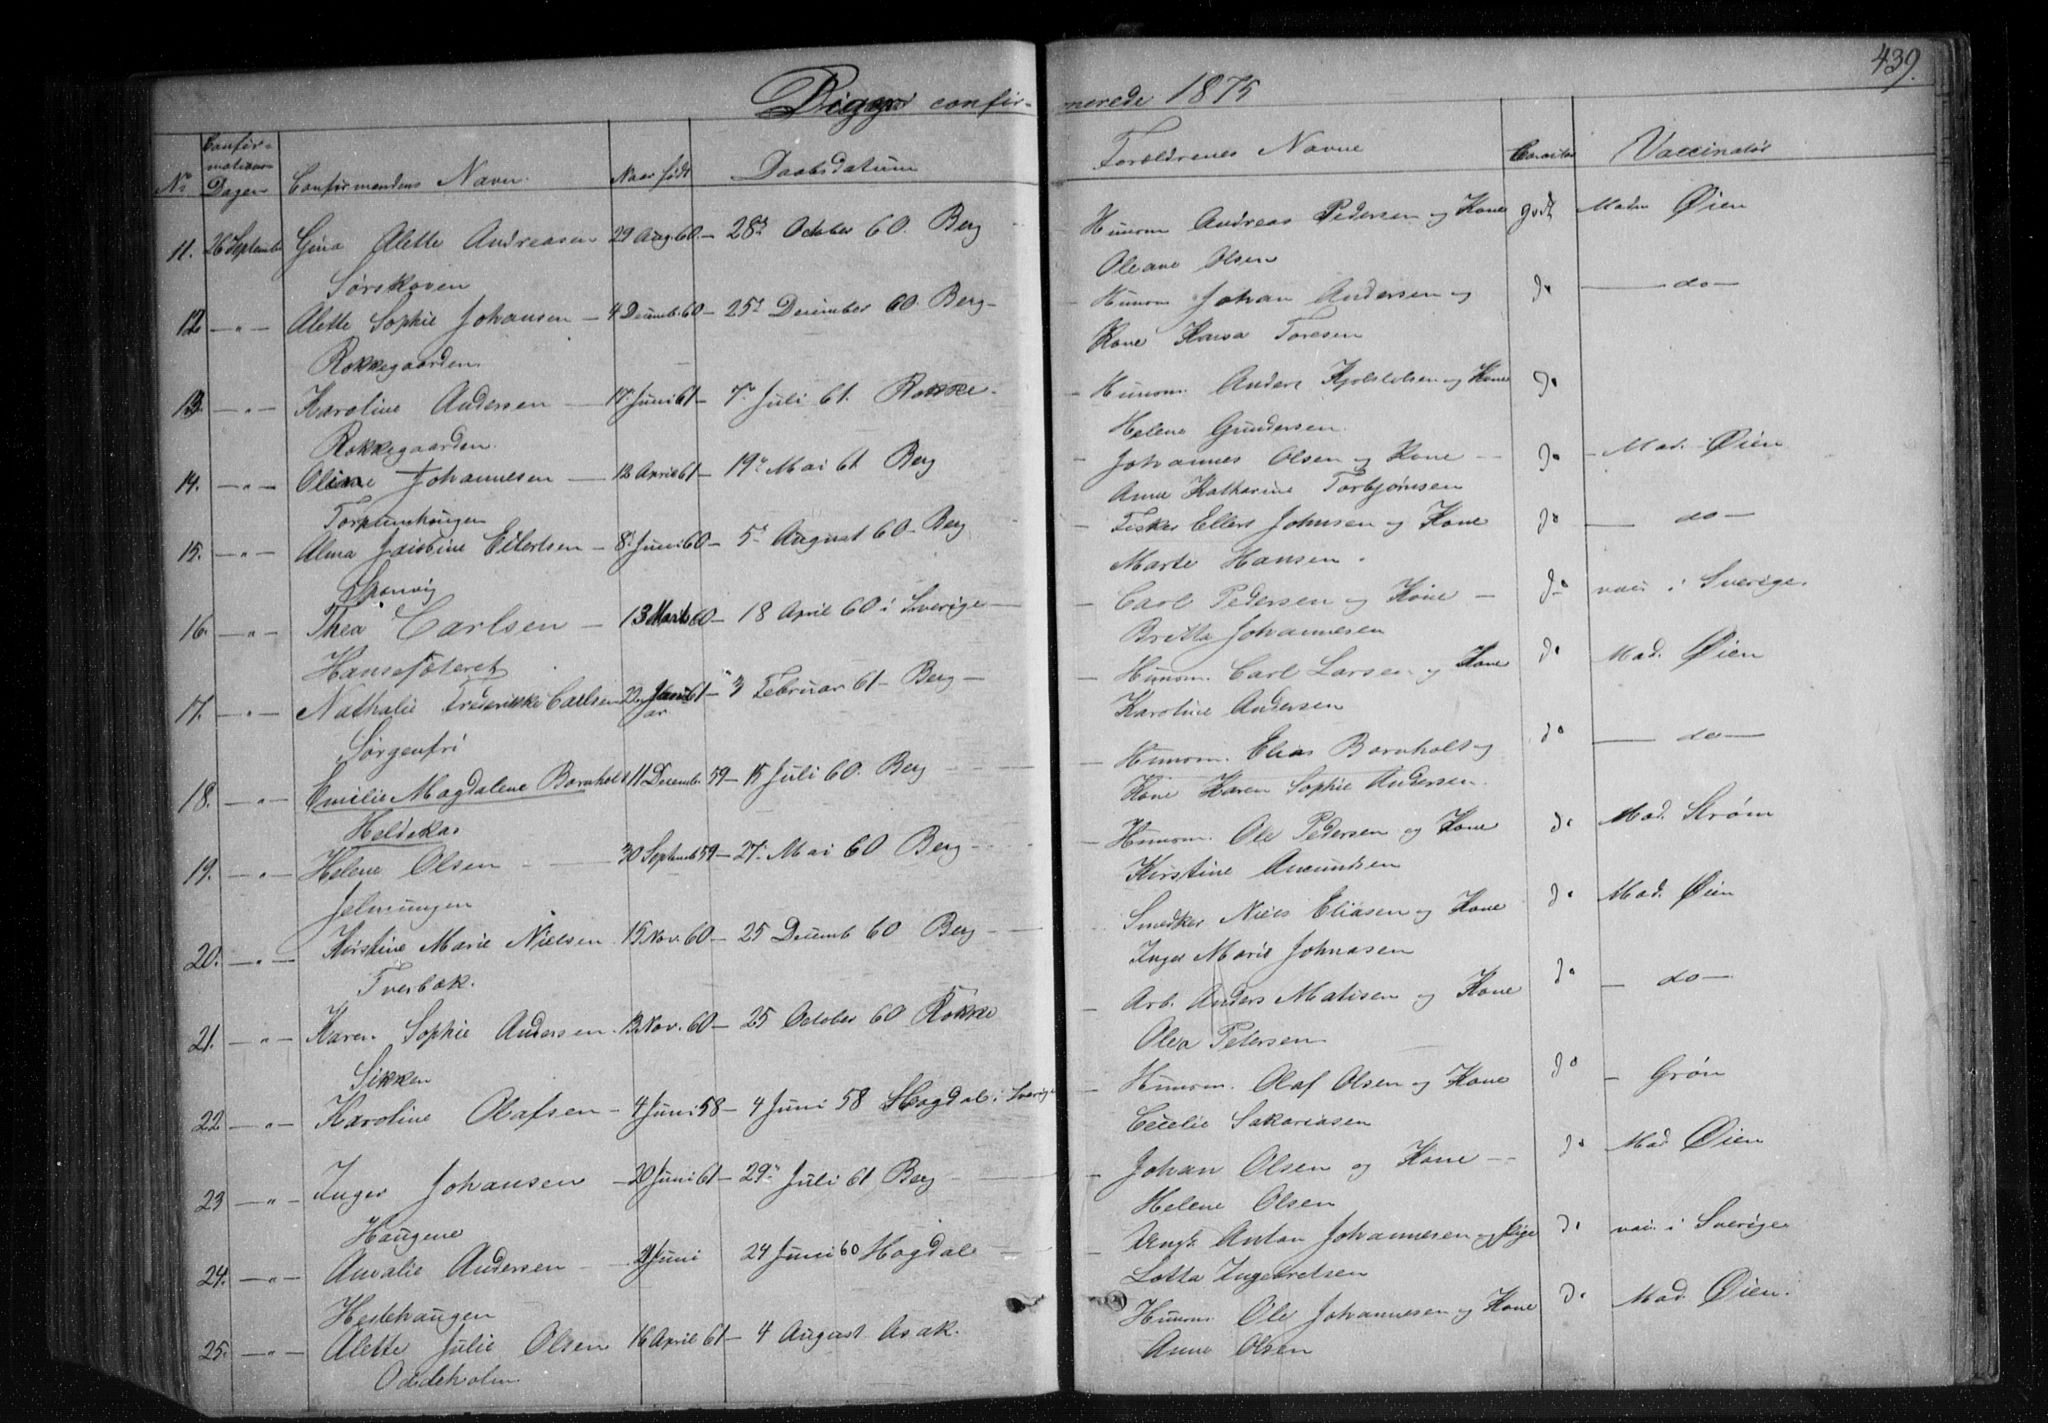 439.
Piger confirmerede 1875
No Confirmations Dagen Confirmandens Navn. Naar født Daabsdatum Forældrenes Navne Caracter Vaccinatør
11. 26 September Gina Alette Andreasen 29 Aug. 60. — 28de October 60. Berg Husm Andreas Pedersen og Kone godt Madm Øien
Sørskoven Oleane Olsen
12 — " — Alette Sophie Johansen — 4 Decemb. 60 — 25de December 60. Berg — Husm Johan Andersen og do — do —
Rokkegaarden Kone Kaisa Toresen
13. — " — Karoline Andersen — 17 Juni 61 — 7 Juli 61. Rokke. Husm. Anders Kjølstolsen og Kone do
Rokkegaarden. Helene Gundersen.
14. — " — Oline Johannesen — 12 April 61 — 19 Mai 61. Berg Johannes Olsen og Kone — do — Mad. Øien
Torpumhaugen Anne Katharine Torbjørnsen
15. — " — Alma Eilertsen — 8 Juni 60 — 5 August 60 — Berg Fisker Ellert Johnsen og Kone do — do —
Sponvig Marte Hansen.
16. — " — Thea Carlsen — 13 Marts 60 — 18 April 60 i Sverige — Carl Pedersen og Kone — do vac. i Sverige.
Hansesæteret Britta Johannesen
17. — " — Nathalie Frederikke Carlsen 22 Januar 61 — 3 Februar 61 — Berg — Husm. Carl Larsen og Kone do Mad. Øien
Sorgenfri Karoline Andersen
18. — " — Emilie Magdalene Bornholt 11 Decemb 59 — 15 Juli 60. Berg Husm. Elias Bornholt og do — do —
Heldeka. Kone Karen Sophie Andersen.
19. — " — Helene Olsen — 30 Septemb 59 — 27. Mai 60 Berg — Husm. Ole Pedersen og Kone do Mad. Strøm
Jelmungen Kirstine Amundsen
20. — " — Kirstine Marie Nielsen 15 Nov. 60 — 25 Decemb 60 Berg — Smedker Niels Eliasen og Kone do Mad. Øien
Tverbæk. Inger Marie Johnasen
21. — " — Karen Sophie Andersen. 13 Nov. 60 — 25 October 60 Rokke — Arb. Anders Matisen og Kone do — do —
Sikken Olea Petersen
22 — " — Karoline Olafsen — 4 Juni 58 — 4 Juni 58 Hogdal i Sverige — Husm. Olaf Olsen og Kone do — Grøn
Cecelie Sakariasen
23 — " — Inger Johansen — 20 Juni 61 — 29 Juli 61 Berg — Johan Olsen og Kone — do Mad Øien
Haugene Helene Olsen
24. — " — Amalie Andersen — 21 Juni 24 Juni 60 Hogdal — Ungk Anton Johannesen og Pige do vac. i Sverige
Hestehaugen Lotta Ingebretsen
25. — " — Alette Julie Olsen 16 April 61 — 4 August Asak. Husm. Ole Johannesen og Kone do Mad. Øien.
Oddeholm Anne Olsen